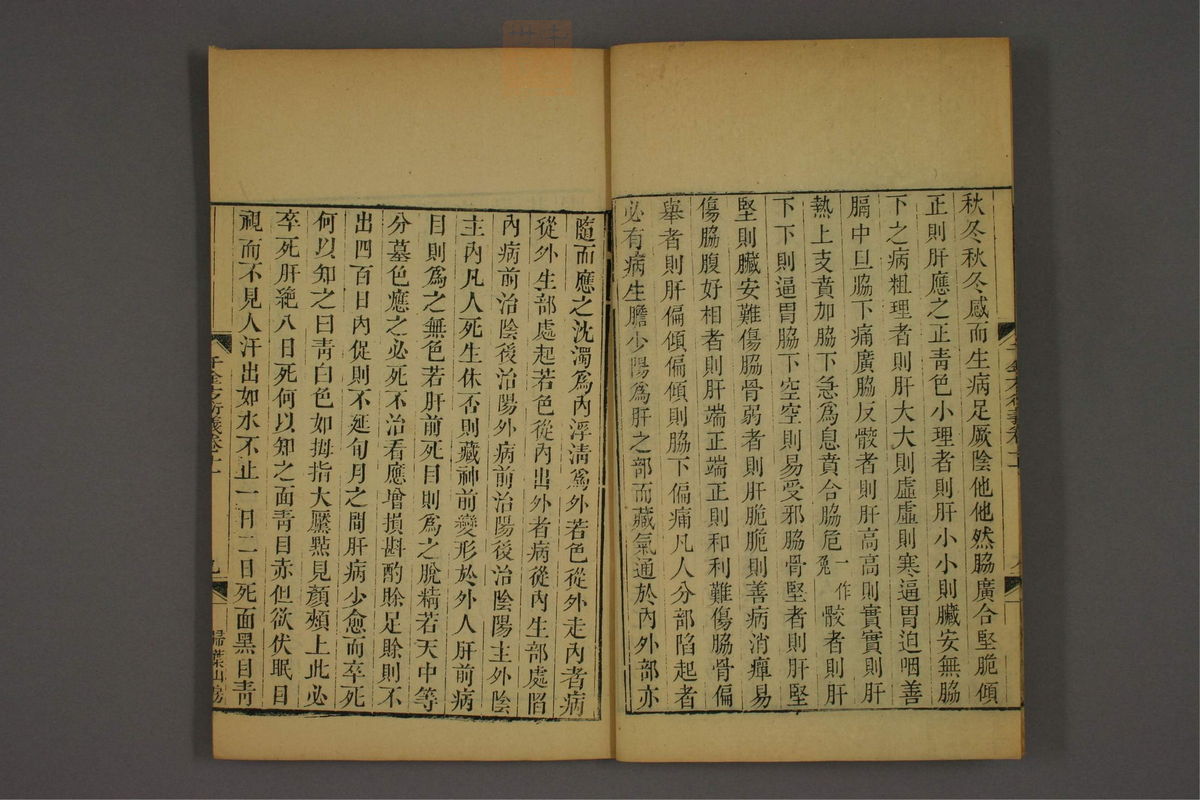 秋冬秋冬感而生病足厥陰他他然脇廣合堅脆傾
正則肝應之正靑色小理者則肝小小則臟安無脇
下之病粗理者則肝大大則虛虛則寒逼胃迫咽善
膈中且脇下痛廣脇反骹者則肝高高則實實則肝
熱上支賁加脇下急爲息賁合脇危一作𩨗骹者則肝
下下則逼胃脇下空空則易受邪脇骨堅者則肝堅
堅則臟安難傷脇骨弱者則肝脆脆則善病消癉易
傷脇腹好相者則肝端正端正則和利難傷脇骨偏
舉者則肝偏傾偏傾則脇下偏痛凡人分部陷起者
必有病生膽少陽爲肝之部而藏氣通於內外部亦
隨而應之沈濁爲內浮清爲外若色從外走內者病
從外生部處起若色從內出外者病從內生部處陷
內病前治陰後治陽外病前治陽後治陰陽主外陰
主內凡人死生休否則藏神前變形於外人肝前病
目則爲之無色若肝前死目則爲之脫精若天中等
分墓色應之必死不治看應增損斟酌賒足賒則不
出四百日內促則不延旬月之間肝病少愈而卒死
何以知之曰靑白色如拇指大黶點見顏頰上此必
卒死肝絕八日死何以知之面靑目赤但欲伏眠目
視而不見人汗出如水不止一日二日死面黑目靑
千金方衍義卷十一
九
掃葉山房